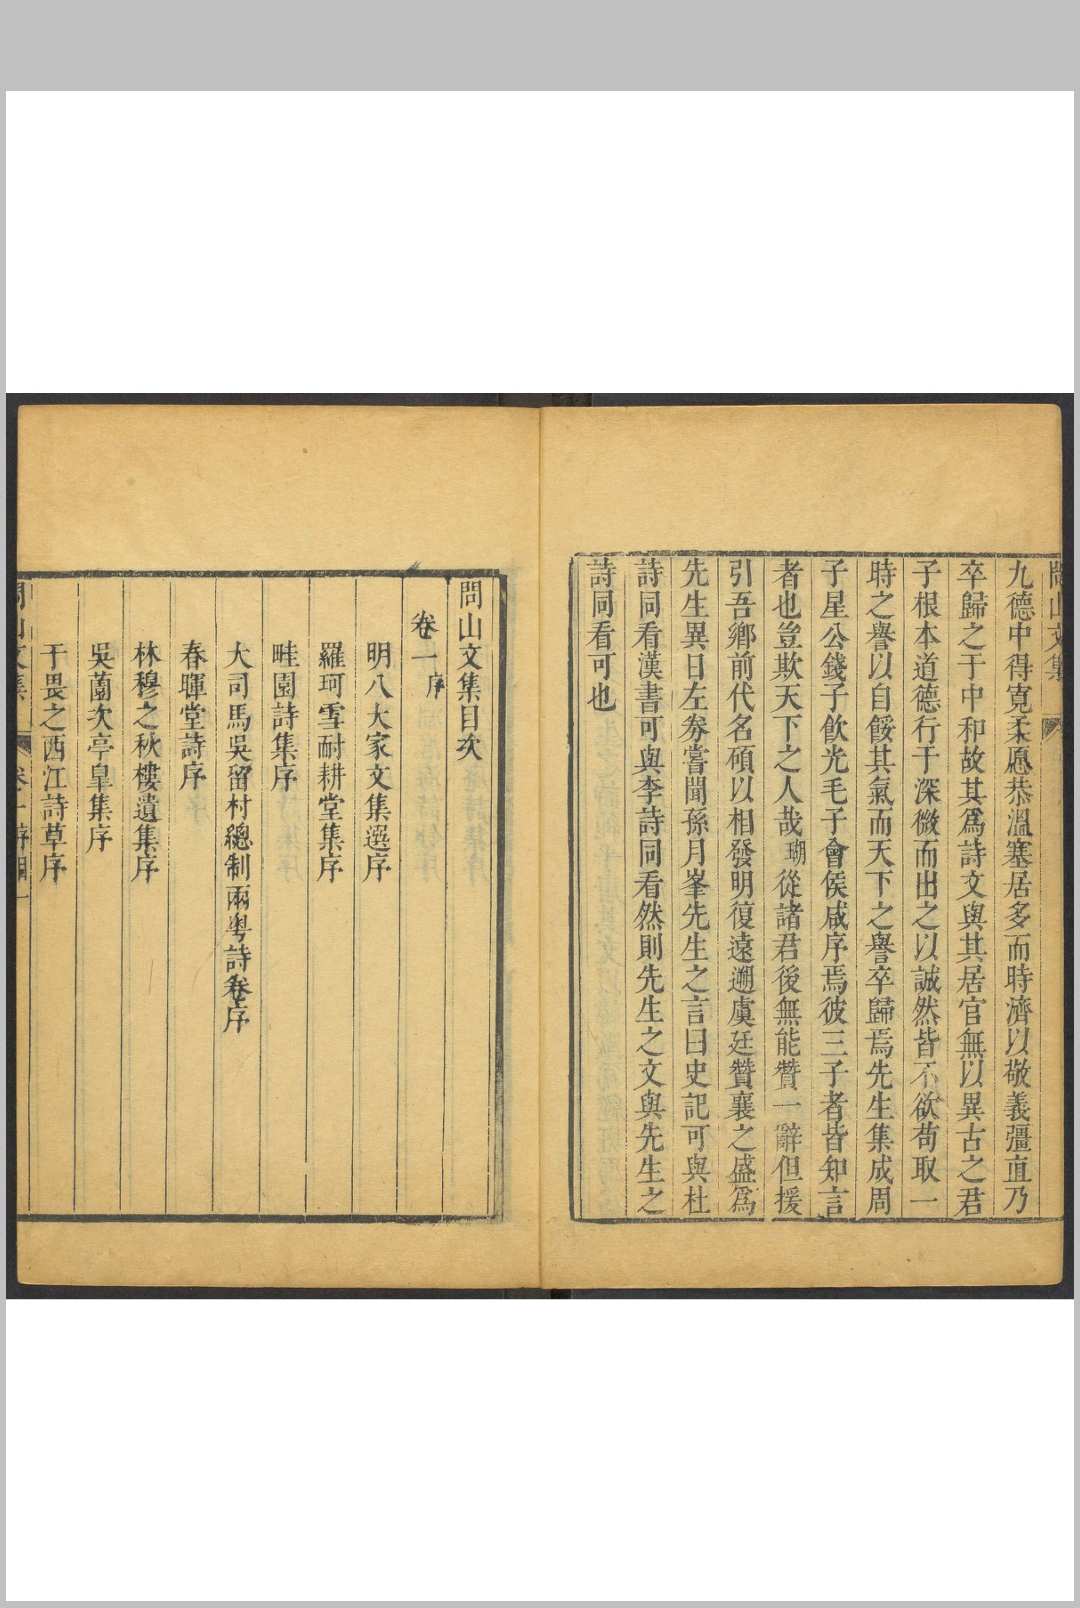 問山文集
九德中得寬柔愿恭溫塞居多而時濟以敬義彊直乃
卒歸之于中和故其爲詩文與其居官無以異古之君
子根本道德行于深微而出之以誠然皆不欲苟取一
時之譽以自餒其氣而天下之譽卒歸焉先生集成周
子星公錢子飮光毛子會侯咸序焉彼三子者皆知言
者也豈欺天下之人哉瑚從諸君後無能贊一辭但援
引吾鄉前代名碩以相發明復遠遡虞廷贊襄之盛爲
先生異日左劵嘗聞孫月峯先生之言曰史記可與杜
詩同看漢書可與李詩同看然則先生之文與先生之
詩同看可也
問山文集目次
卷一序
明八大家文集選序
羅珂雪耐耕堂集序
畦園詩集序
大司馬吳留村總制兩粵詩卷序
春暉堂詩序
林穆之秋樓遺集序
吳薗次亭皐集序
于畏之西江詩草序
問山文集 卷一序目 一